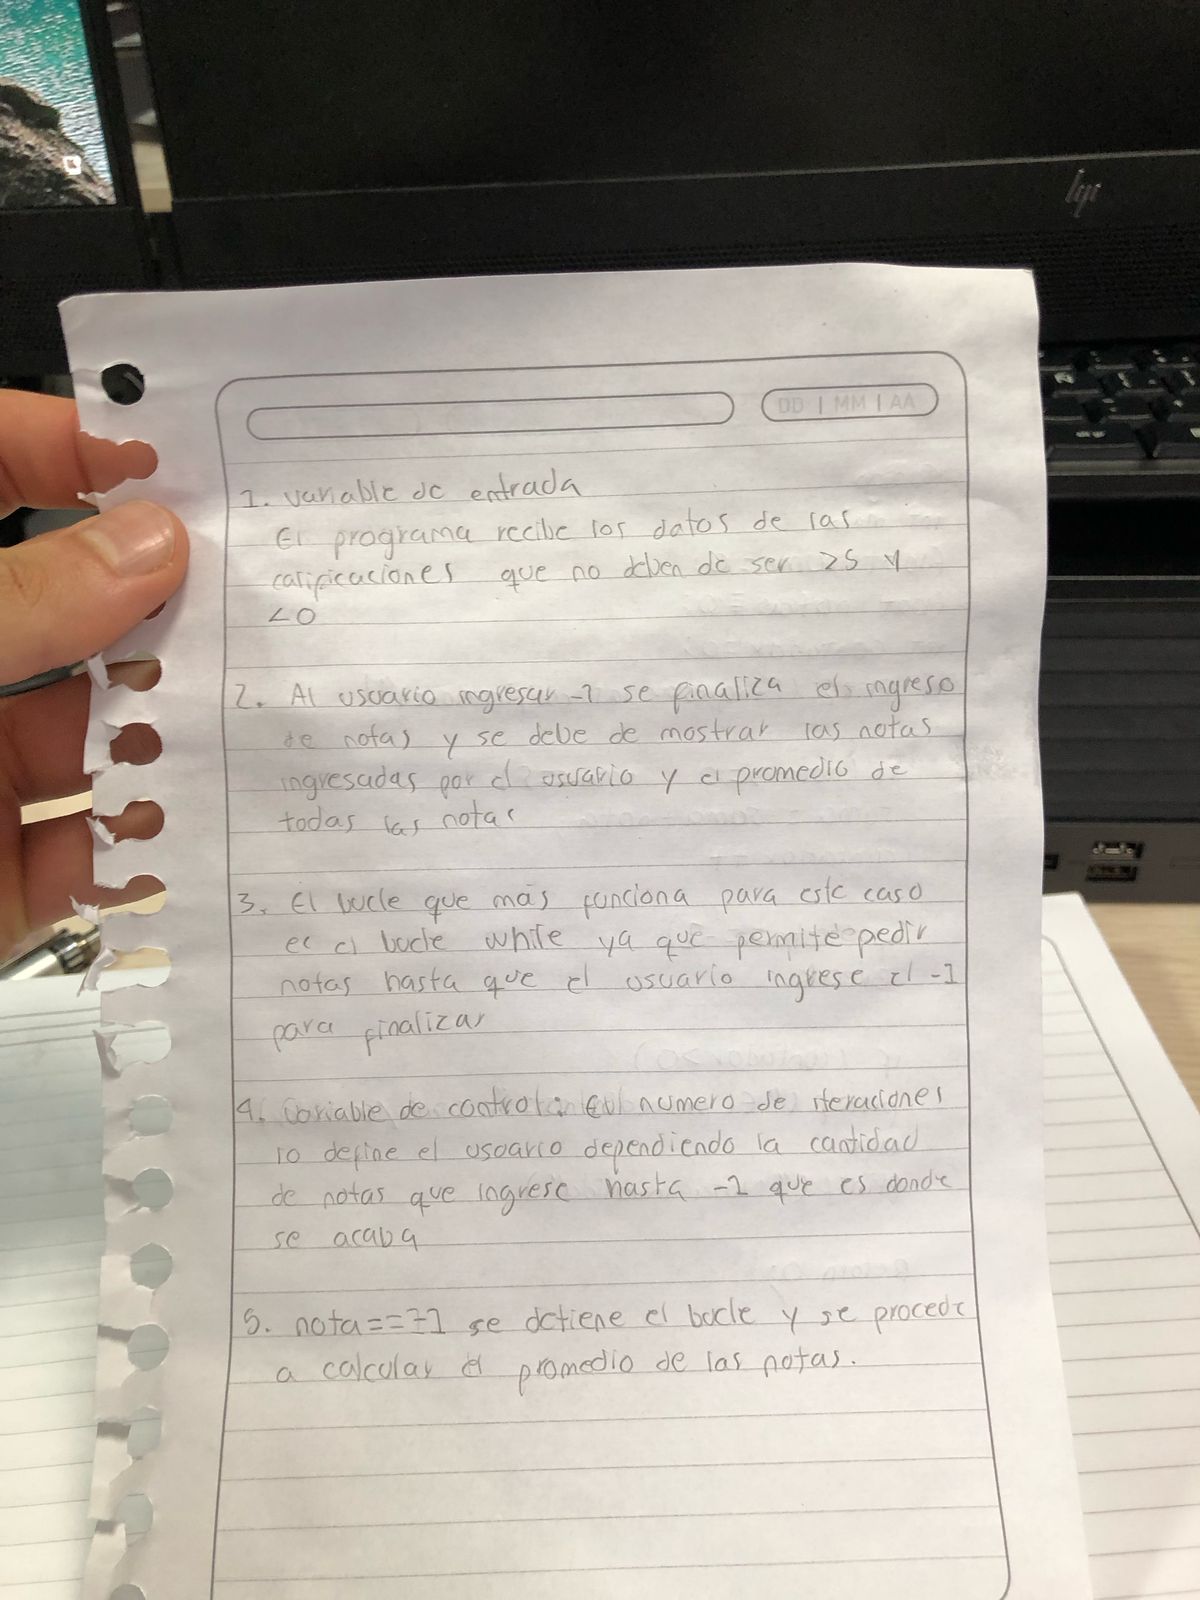 hp
DD | MM | AA
1. Variable de entrada
El programa recibe los datos de las
calificaciones que no deben de ser >5 y
<0
2. Al usuario ingresar -1 se finaliza el ingreso
de notas y se debe de mostrar las notas
ingresadas por el usuario y el promedio de
todas las notas
3. El bucle que más funciona para este caso
es el bucle while ya que permite pedir
notas hasta que el usuario ingrese el -1
para finalizar
4. Variable de control: El numero de iteraciones
lo define el usuario dependiendo la cantidad
de notas que ingrese hasta -1 que es donde
se acaba
5. nota==-1 se detiene el bucle y se procede
a calcular el promedio de las notas.